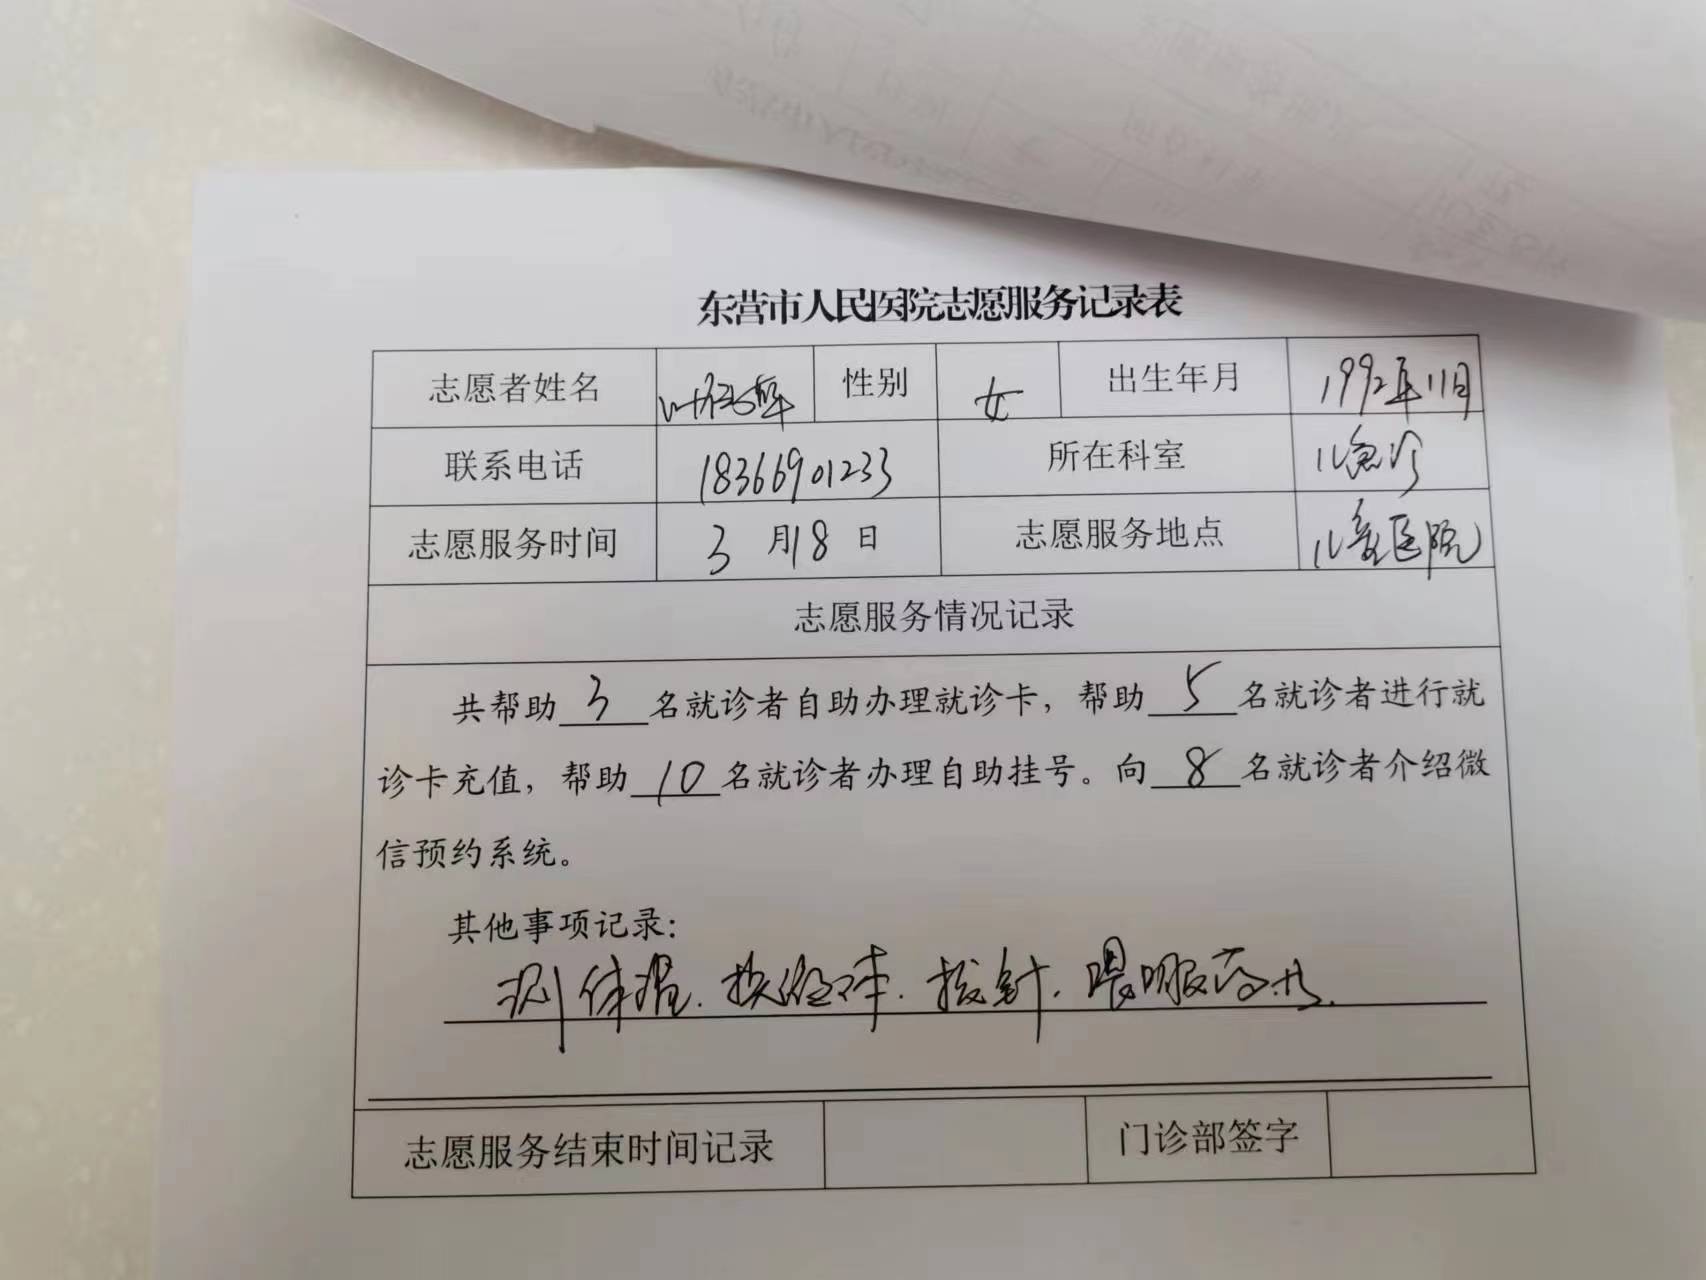 东营市人民医院志愿服务记录表
志愿者姓名 性别 女 出生年月 1992年11月
联系电话 18366901233 所在科室 儿急诊
志愿服务时间 3月18日 志愿服务地点 儿童医院
志愿服务情况记录
共帮助3名就诊者自助办理就诊卡，帮助5名就诊者进行就
诊卡充值，帮助10名就诊者办理自助挂号。向8名就诊者介绍微
信预约系统。
其他事项记录：
测体温. 拔针. 喂服药
志愿服务结束时间记录 门诊部签字